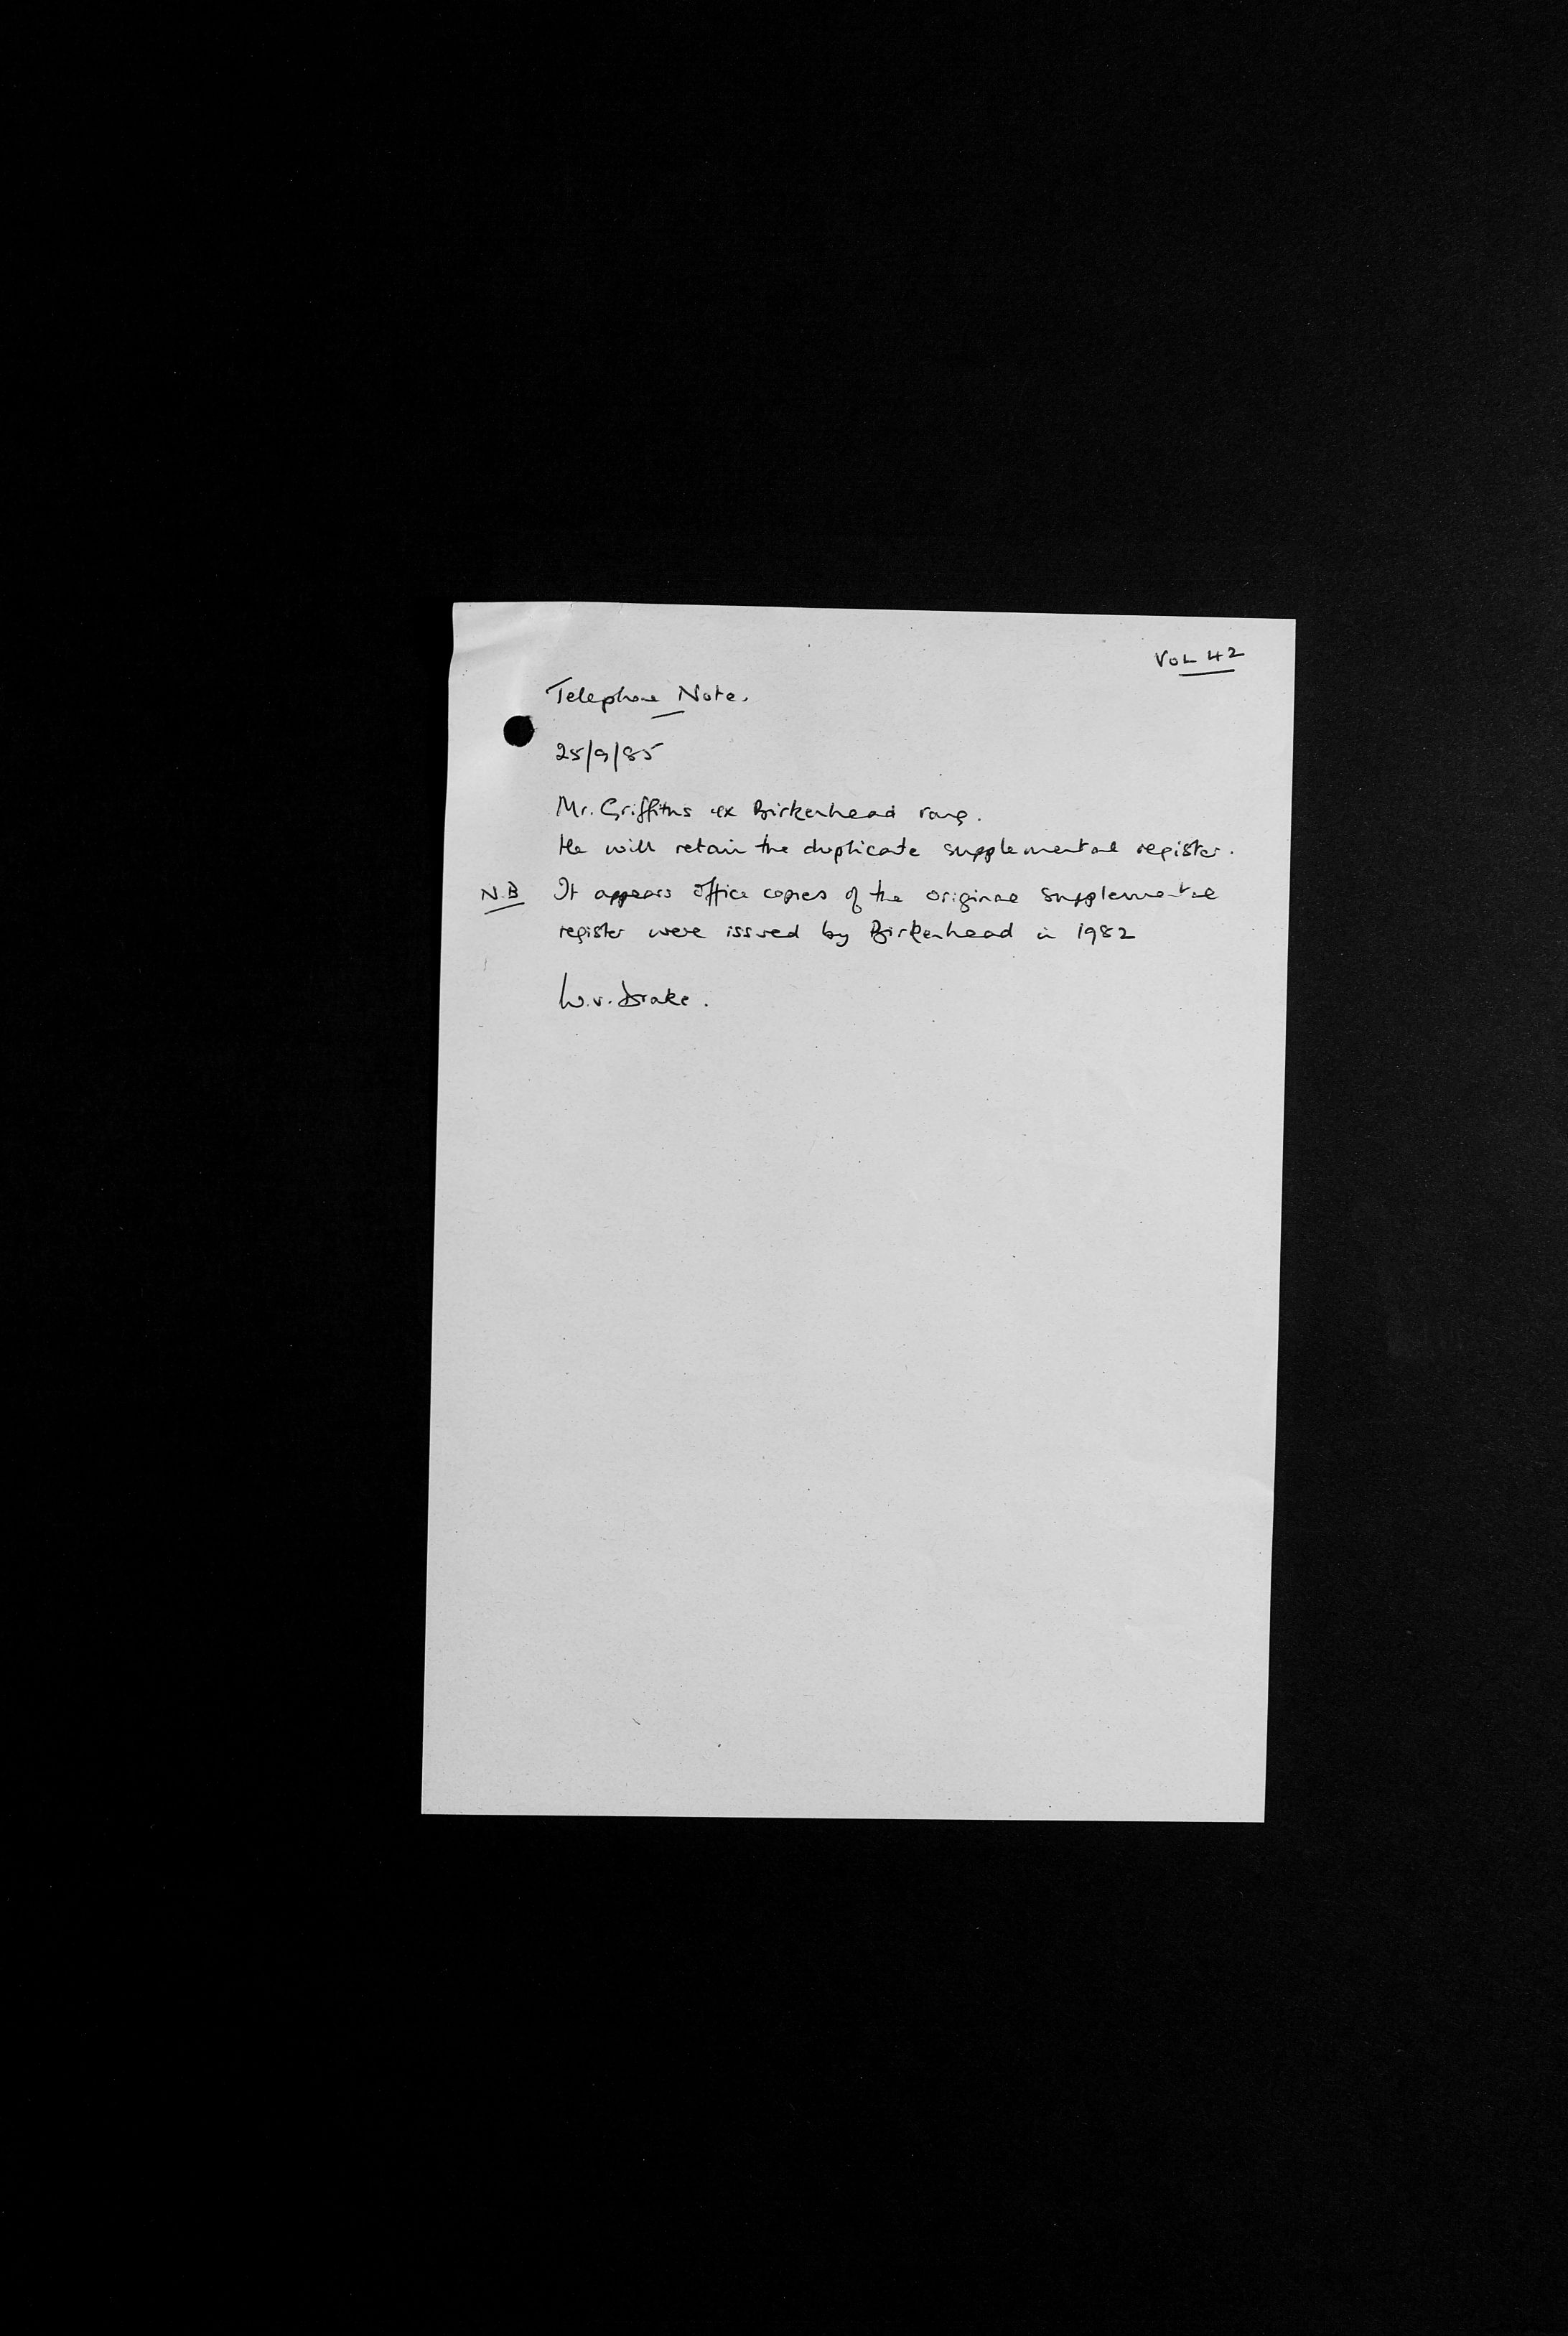 VOL 42
Telephone Note.
25/9/85
Mr. Griffiths ex Birkenhead rang.
He will retain the duplicate supplemental register.
N.B It appears office copies of the original supplemental
register were issued by Birkenhead in 1982
W.V. Drake.